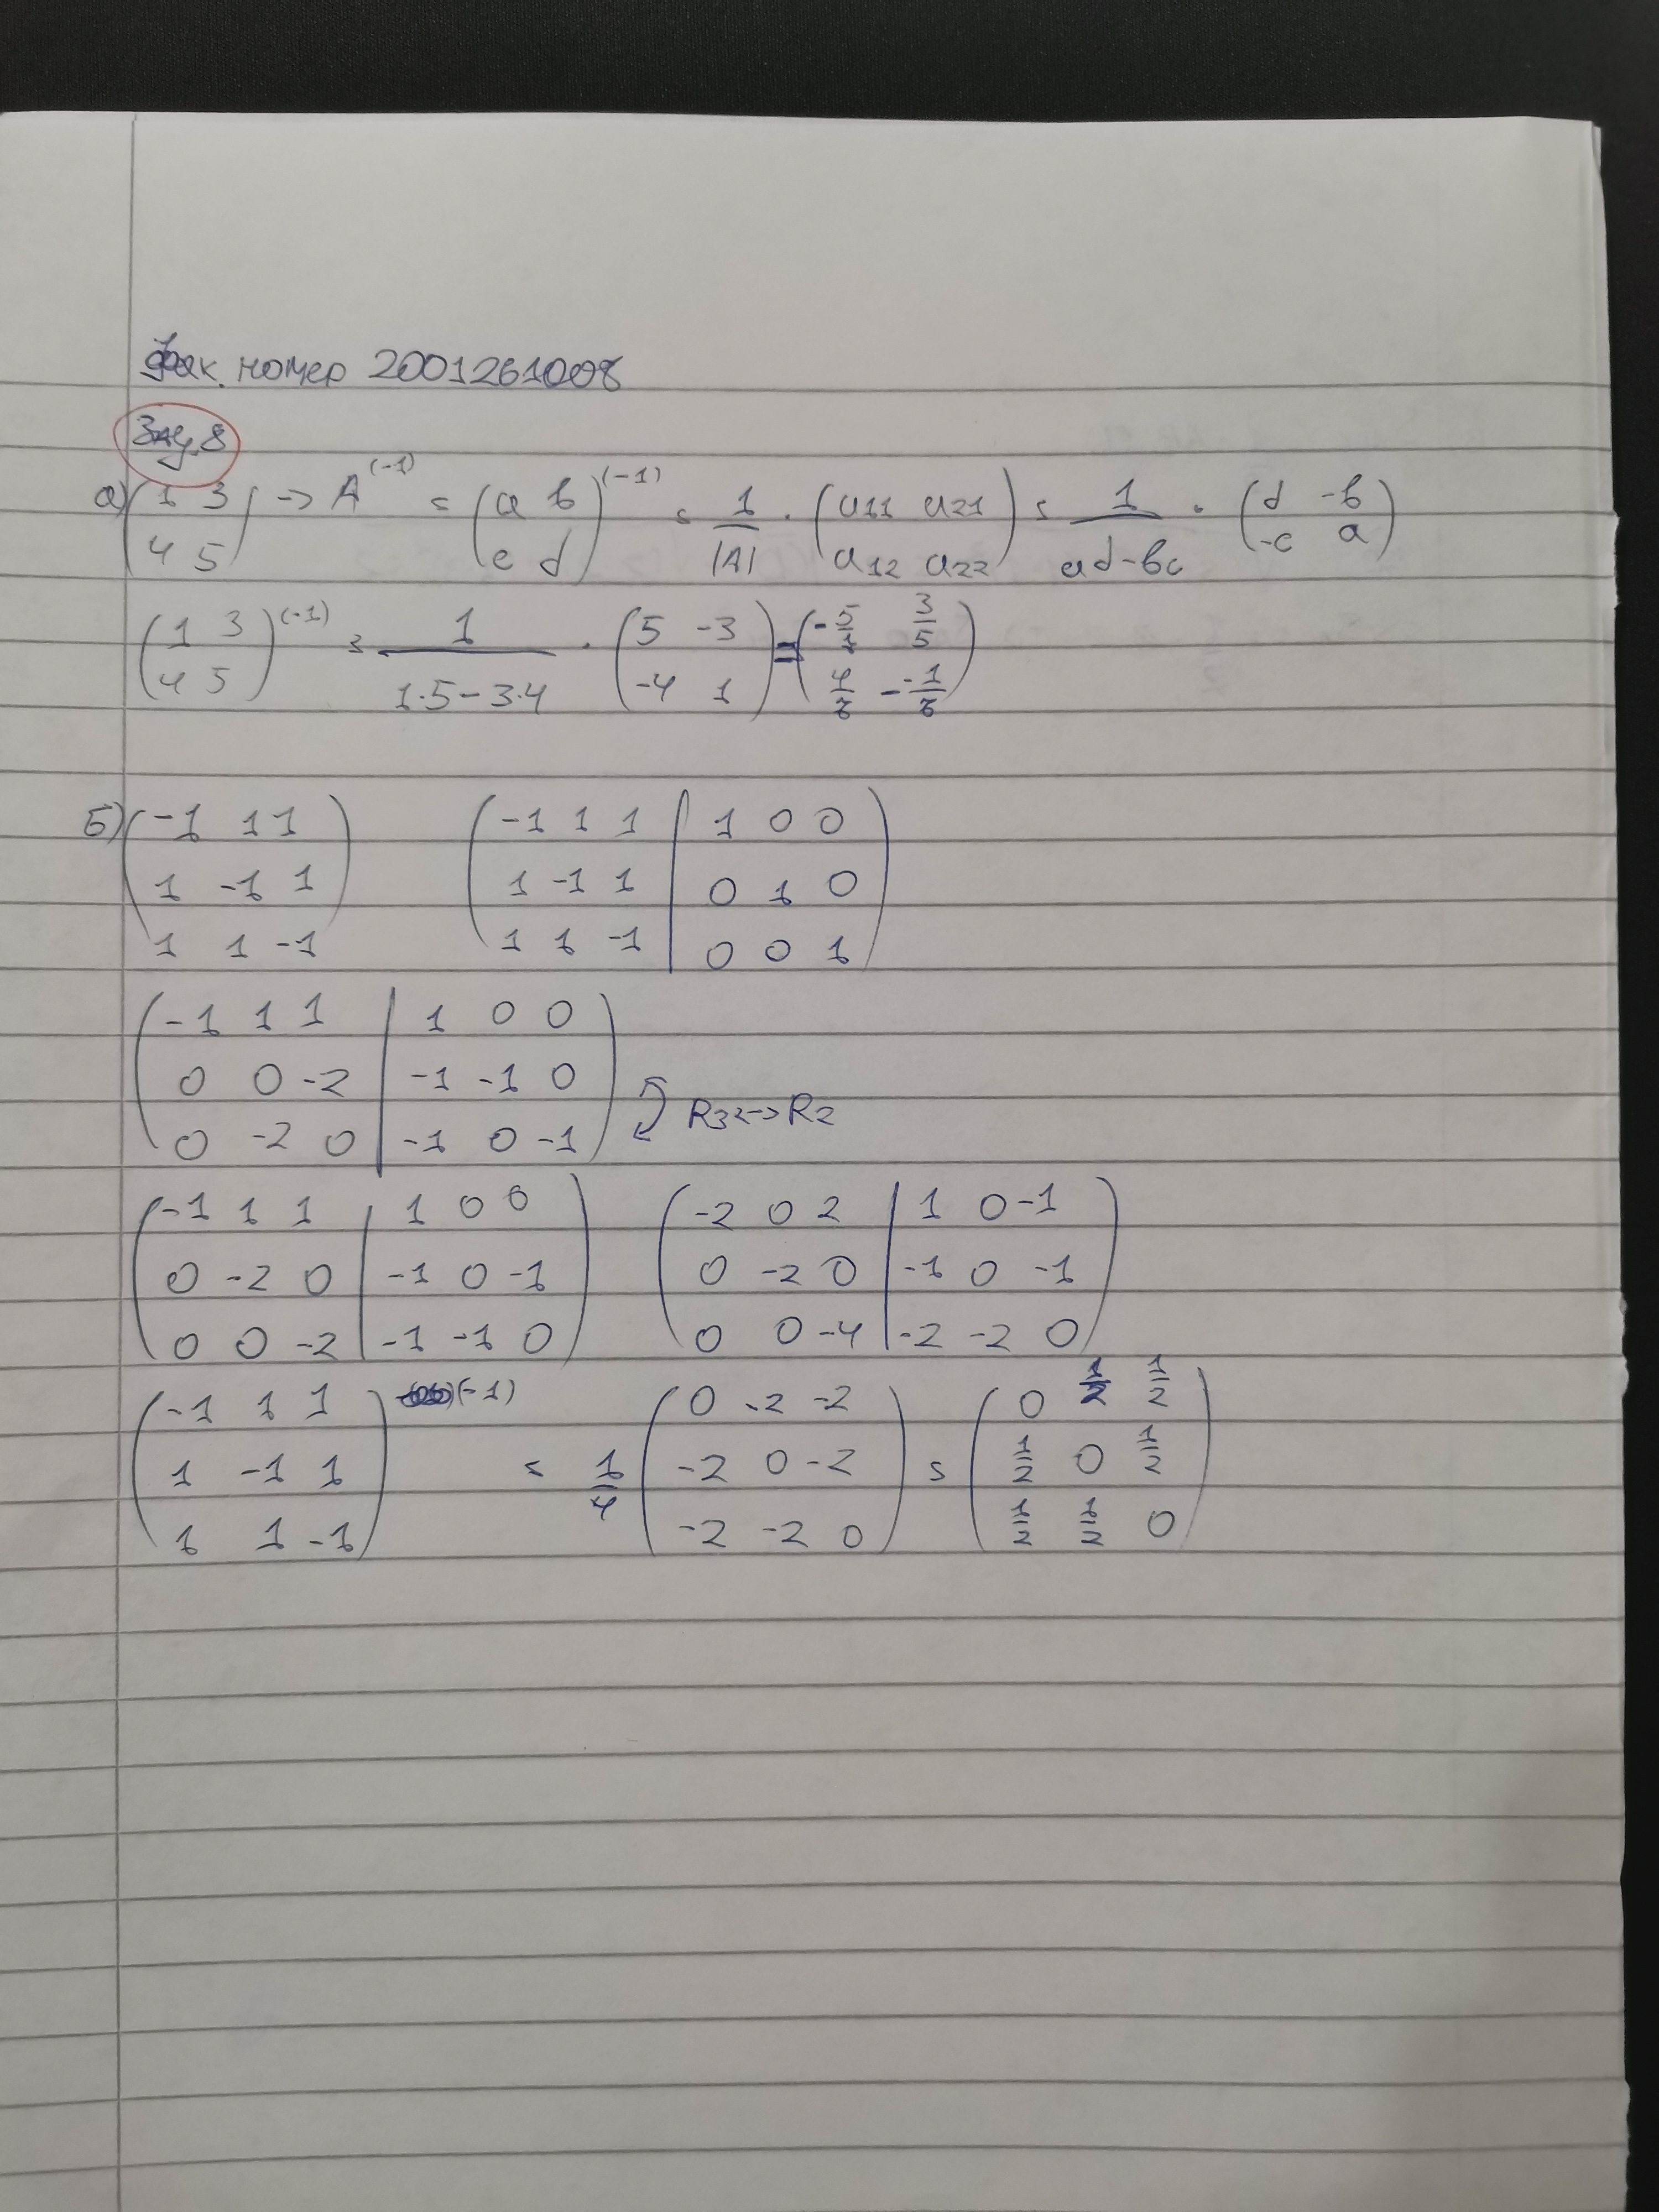 Фак. номер 2001261008
Зад. 8
а) (1 3 / 4 5) -> A^(-1) = (a b / c d)^(-1) = 1/|A| · (a11 a21 / a12 a22) = 1/(ad-bc) · (d -b / -c a)
(1 3 / 4 5)^(-1) = 1/(1·5-3·4) · (5 -3 / -4 1) =
б) (-1 1 1 / 1 -1 1 / 1 1 -1) (-1 1 1 | 1 0 0 / 1 -1 1 | 0 1 0 / 1 1 -1 | 0 0 1)
(-1 1 1 | 1 0 0 / 0 0 -2 | -1 -1 0 / 0 -2 0 | -1 0 -1) R3<->R2
(-1 1 1 | 1 0 0 / 0 -2 0 | -1 0 -1 / 0 0 -2 | -1 -1 0) (-2 0 2 | 1 0 -1 / 0 -2 0 | -1 0 -1 / 0 0 -4 | -2 -2 0)
(-1 1 1 / 1 -1 1 / 1 1 -1)^(-1) = 1/4 (0 -2 -2 / -2 0 -2 / -2 -2 0) = (0 1/2 1/2 / 1/2 0 1/2 / 1/2 1/2 0)